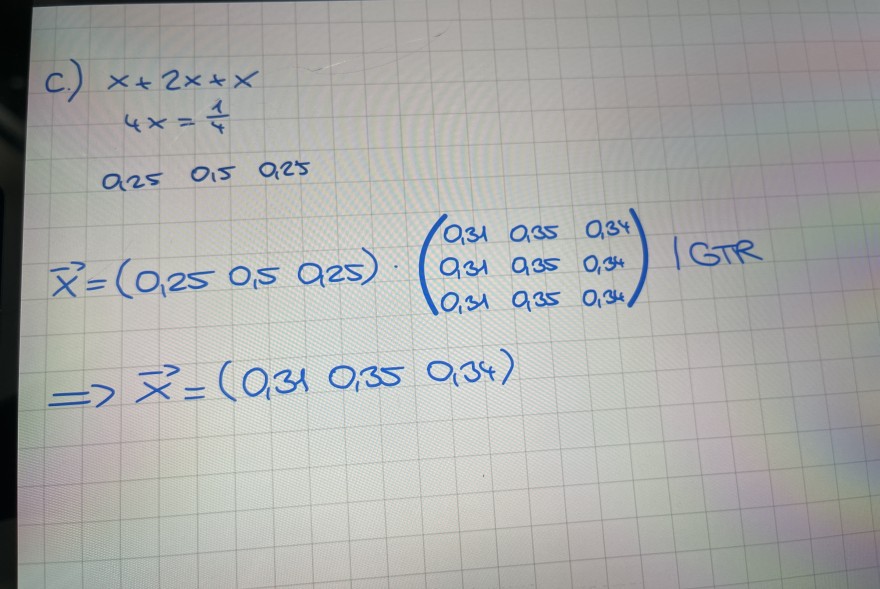 c.) x + 2x + x
4x = 1/4
0,25 0,5 0,25
x⃗ = (0,25 0,5 0,25) · (0,31 0,35 0,34
0,31 0,35 0,34
0,31 0,35 0,34) | GTR
=> x⃗ = (0,31 0,35 0,34)